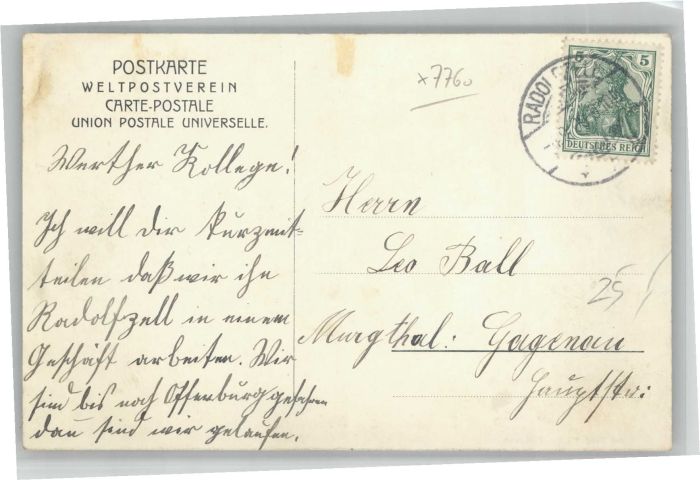 POSTKARTE
WELTPOSTVEREIN
CARTE-POSTALE
UNION POSTALE UNIVERSELLE.
Werther Kollege!
Ich will dir kurz mit=
teilen daß wir ihn
Radolfzell in einem
Geschäft arbeiten. Wir
sind bis nach Offenburg gefahren
dan sind wir gelaufen.
x7760
RADOLFZELL
5 5
DEUTSCHES REICH
Herrn
Leo Ball
Murgthal: Gagenau
Hauptstr:
25